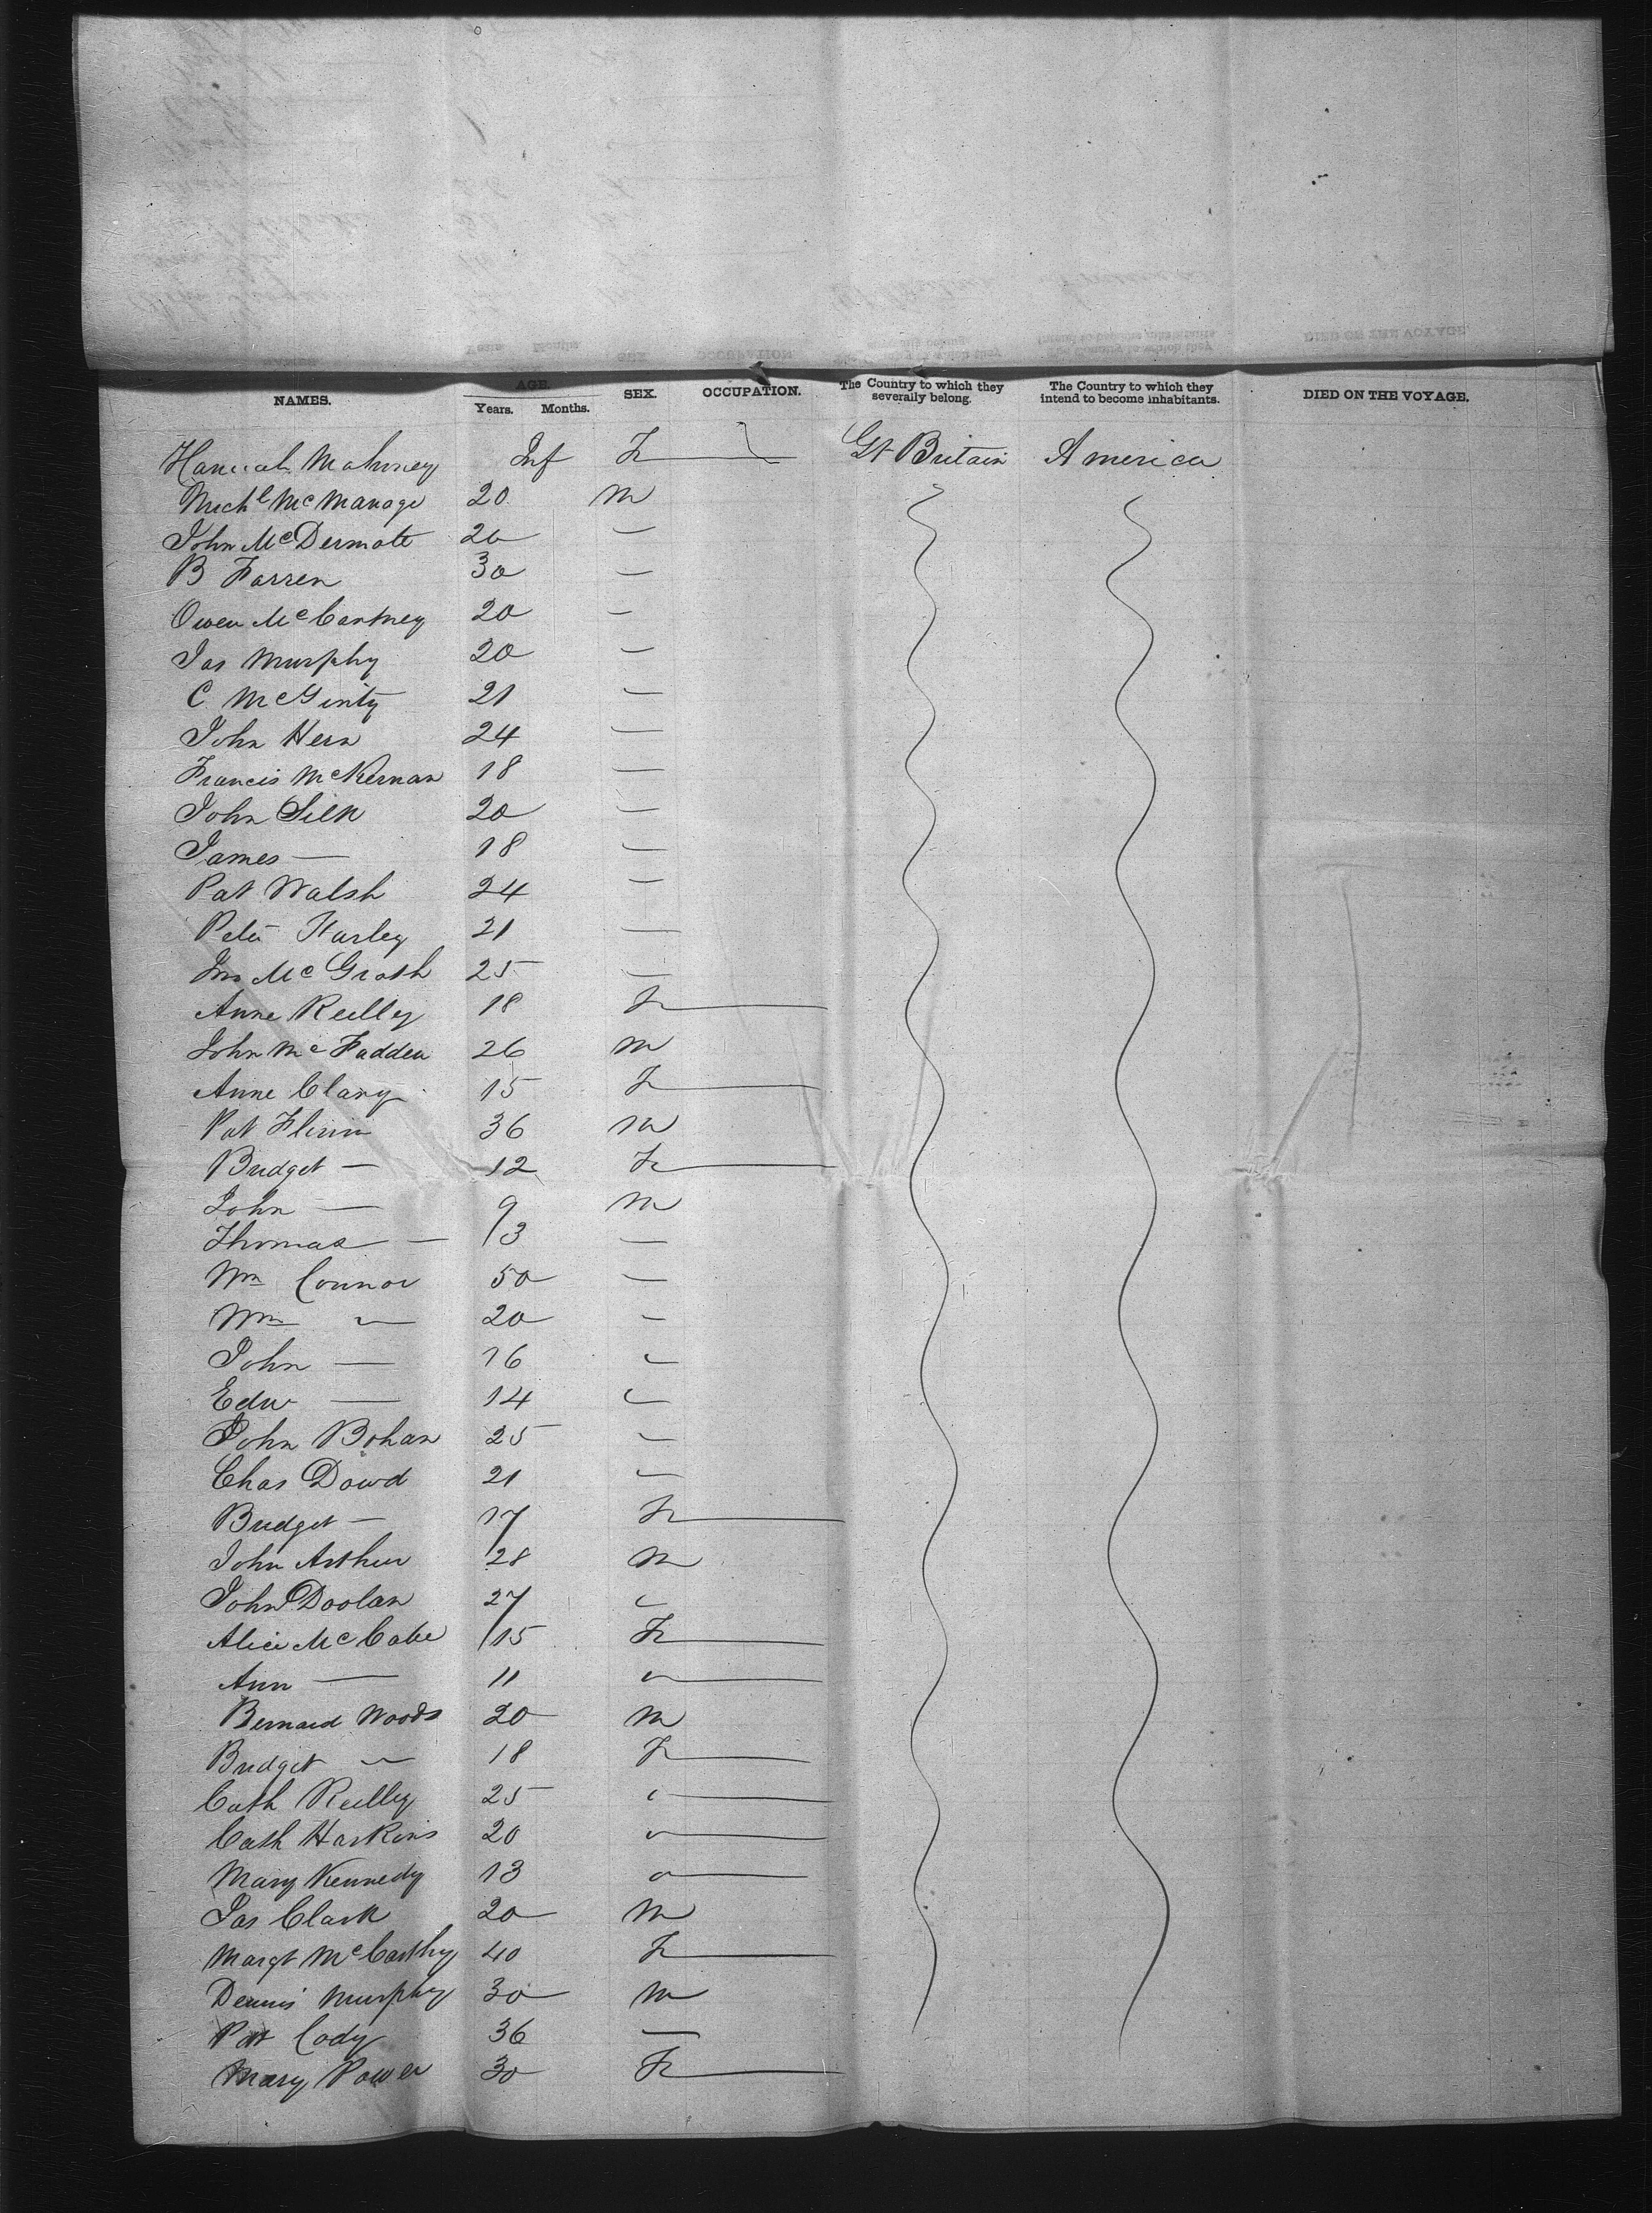 NAMES. AGE. Years. Months. SEX. OCCUPATION. The Country to which they severally belong. The Country to which they intend to become inhabitants. DIED ON THE VOYAGE.
Hannah Mahoney Inf F Gt Britain America
Michl McManage 20 M
John McDermott 20 —
B Farren 30 —
Owen McCartney 20 —
Jas Murphy 20 —
C. McGinty 21 —
John Hern 24 —
Francis McKernan 18 —
John Silk 20 —
James — 18 —
Pat Walsh 24 —
Peter Harley 21 —
Jno McGrath 25 —
Anne Reilly 18 F
John McFadden 26 M
Anne Clary 15 F
Pat Flinn 36 M
Bridget — 12 F
John — 9 M
Thomas — 3 —
Wm Connor 50 —
Wm — 20 —
John — 16 —
Edw — 14 —
John Bohan 25 —
Chas Dowd 21 —
Bridget — 17 F
John Arthur 28 M
John Doolan 27 —
Alice McCabe 15 F
Ann — 11 —
Bernard Woods 20 M
Bridget — 18 F
Cath Reilly 25 —
Cath Harkins 20 —
Mary Kennedy 13 —
Jas Clark 20 M
Margt McCarthy 40 F
Dennis Murphy 30 M
Pat Cody 36 —
Mary Power 30 F